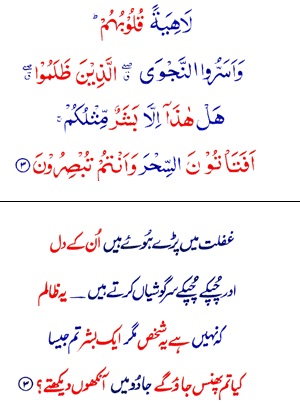 لَاهِيَةً قُلُوْبُهُمْ ؕ
وَاَسَرُّوا النَّجْوَى ۖۗ الَّذِيْنَ ظَلَمُوْا ۖۗ
هَلْ هٰذَاۤ اِلَّا بَشَرٌ مِّثْلُكُمْ ۚ
اَفَتَاْتُوْنَ السِّحْرَ وَاَنْتُمْ تُبْصِرُوْنَ ﴿۳﴾
غفلت میں پڑے ہُوئے ہیں اُن کے دل
اور چُپکے چُپکے سرگوشیاں کرتے ہیں ــ یہ ظالم
کہ نہیں ہے یہ شخص مگر ایک بشر تم جیسا
کیا تم پھنس جاؤ گے جادُو میں آنکھوں دیکھتے؟ ﴿۳﴾